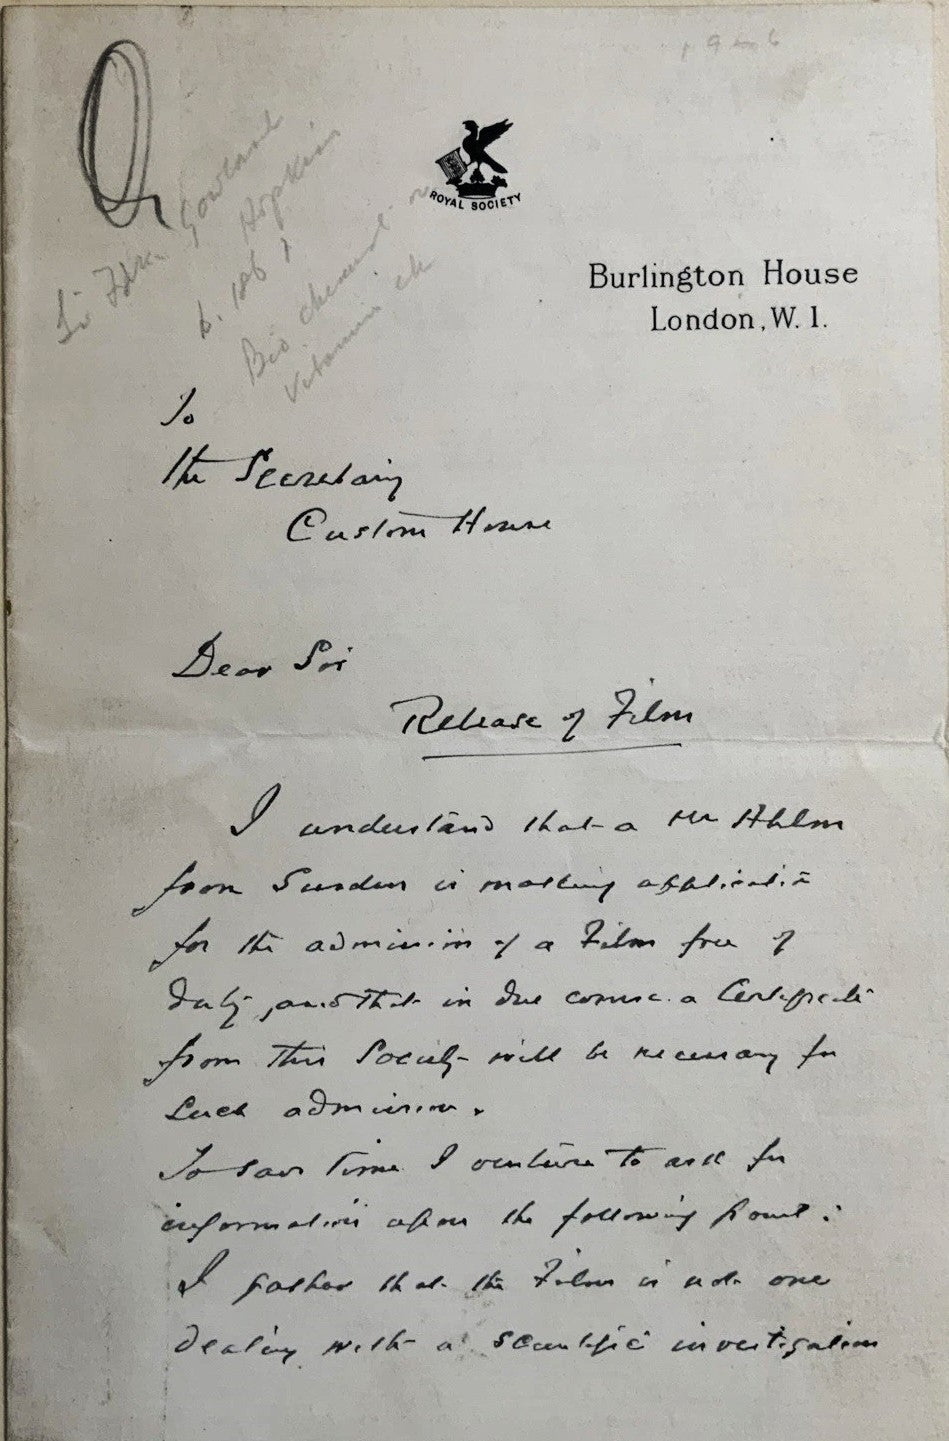 ROYAL SOCIETY
Burlington House
London, W. 1.
Gowland
Hopkins
Bio chemist
Vitamin
To
the Secretary
Custom House
Dear Sir
Release of Film
I understand that a Mr Ahlm
from Sweden is making application
for the admission of a Film free of
duty, and that in due course a Certificate
from this Society will be necessary for
such admission.
To save time I venture to ask for
information upon the following point:
I gather that the Film is not one
dealing with a scientific investigation